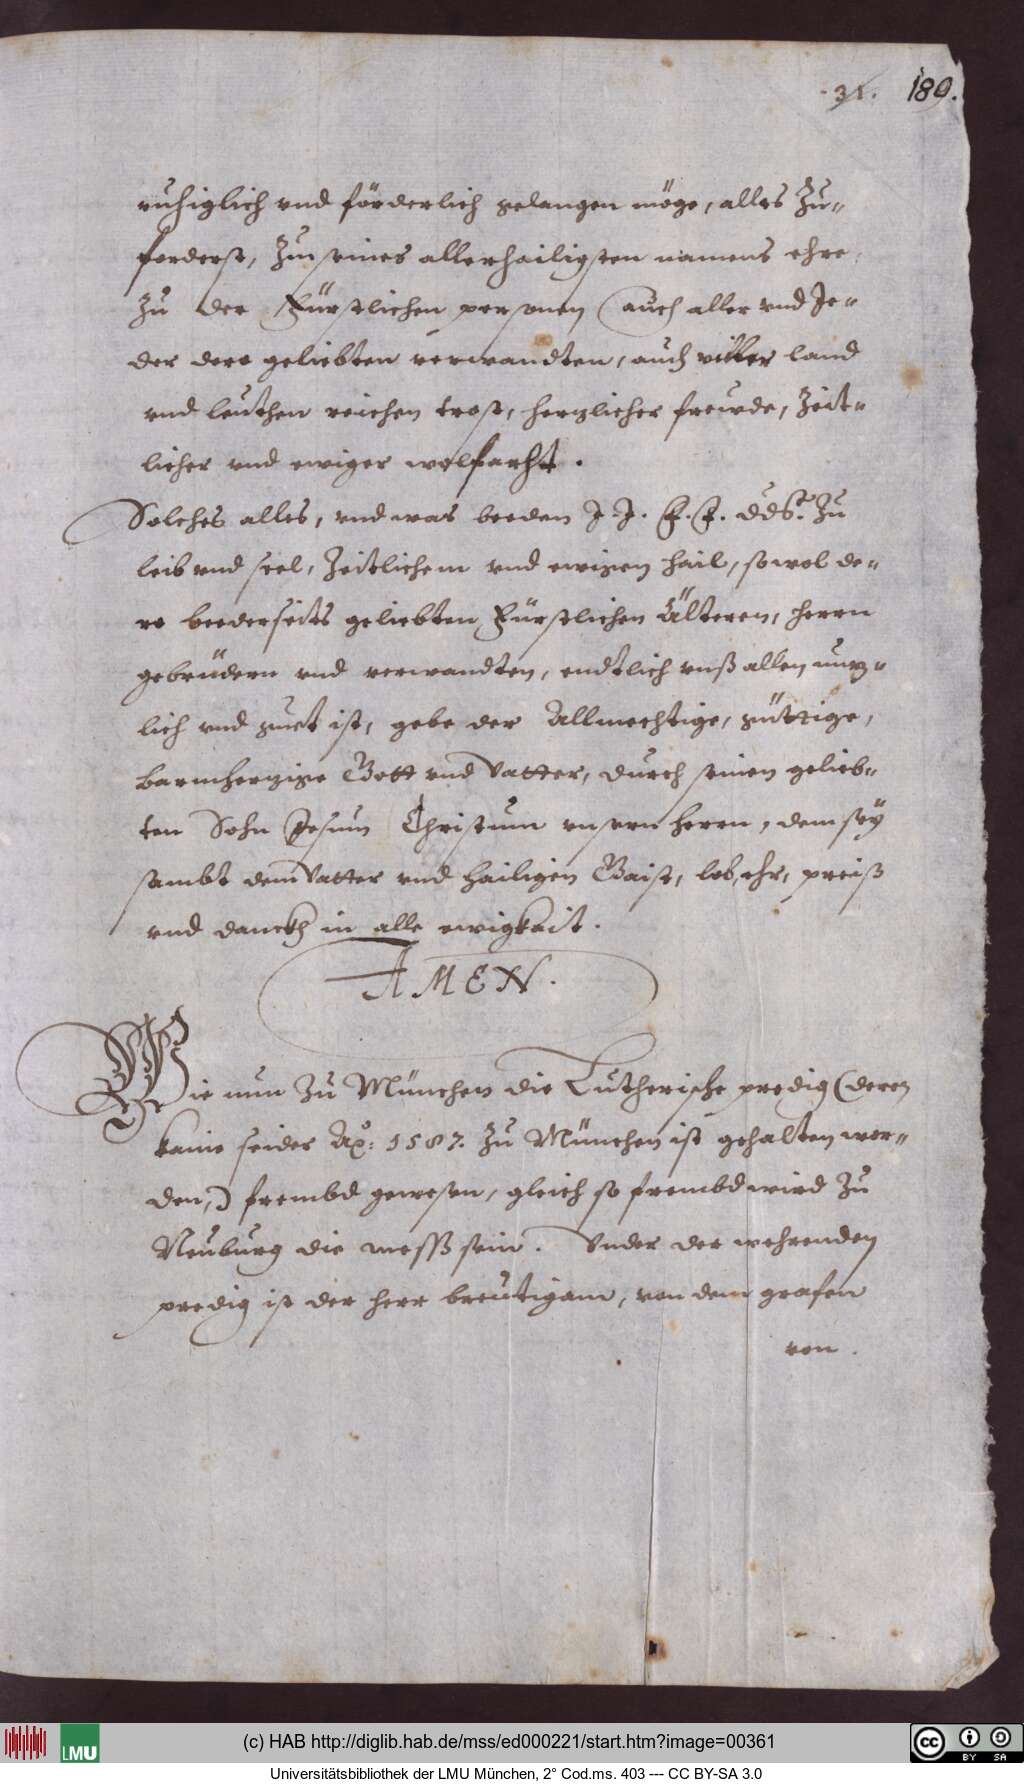 31. 180.
ruhiglich vnd förderlich gelangen möge, alles Zu-
forderst, Zu seines allerhailigsten namens ehre,
Zu der Fürstlichen personen (auch aller vnd Je-
der dero geliebten verwandten, auch viller land
vnd leuthen reichen trost, herzlicher freude, Zeit-
licher vnd ewiger wolfarht.
Solches alles, vnd was beeden J. J. F. F. dd. Zu
leib vnd seel, Zeitlichem vnd ewigen hail, sowol de-
ro beederseits geliebten Fürstlichen Älteren, herrn
gebrüdern vnd verwandten, endtlich vnß allen nuz-
lich vnd guet ist, gebe der Allmechtige, güttige,
barmherzige Gott vnd Vatter, durch seinen gelieb-
ten Sohn Jesum Christum vnsern herrn, dem sey
sambt dem Vatter vnd hailigen Gaist, lob, ehr, preiß
vnd danckh in alle ewigkait.
AMEN.
Wie nun Zu München die Lutherische predig (deren
kaine seider Ao: 1587. Zu München ist gehalten wor-
den,) frembd gewesen, gleich so frembd wird Zu
Neuburg die messß sein. Vnder der wehrenden
predig ist der herr breutigam, von dem grafen
von.
(c) HAB http://diglib.hab.de/mss/ed000221/start.htm?image=00361
LMU
cc BY SA
Universitätsbibliothek der LMU München, 2° Cod.ms. 403 --- CC BY-SA 3.0